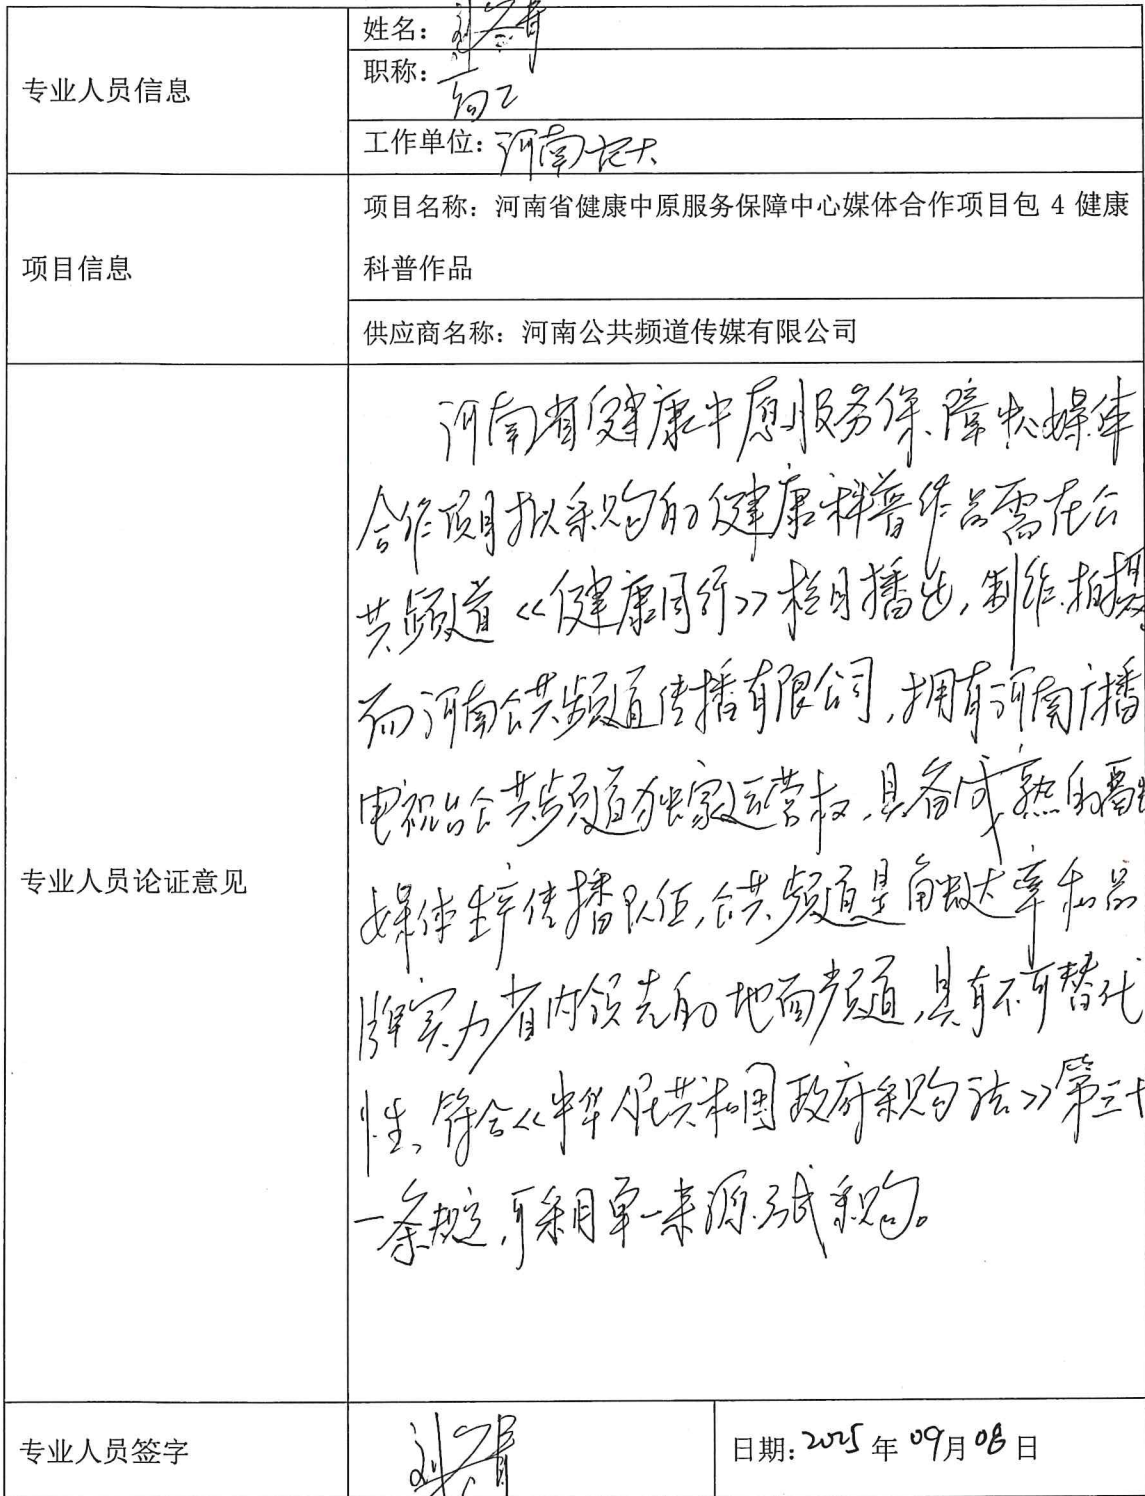 专业人员信息
姓名：
职称：高工
工作单位：河南
项目信息
项目名称：河南省健康中原服务保障中心媒体合作项目包 4 健康
科普作品
供应商名称：河南公共频道传媒有限公司
专业人员论证意见
河南省健康中原服务保障中心媒体
合作项目拟采购的健康科普作品需在公
共频道《健康同行》栏目播出,制作、拍摄
而河南公共频道传播有限公司,拥有河南广播
电视台公共频道独家运营权,具备成熟的
媒体生产传播队伍,公共频道是 和品
牌实力省内领先的地面频道,具有不可替代
性、符合《中华人民共和国政府采购法》第三十
一条规定,可采用单一来源方式采购。
专业人员签字
日期:2025 年 09月 08 日